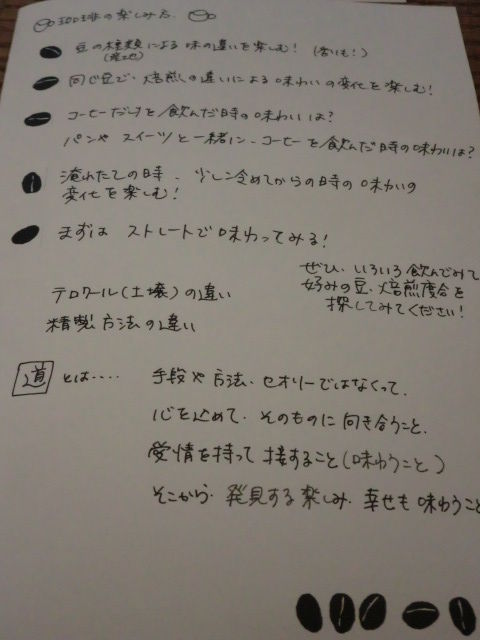 珈琲の楽しみ方.
豆の種類による味の違いを楽しむ! (香りも!)
(産地)
同じ豆で、焙煎の違いによる味わいの変化を楽しむ!
コーヒーだけを飲んだ時の味わいは?
パンやスイーツと一緒に、コーヒーを飲んだ時の味わいは?
淹れたての時、少し冷めてからの時の味わいの
変化を楽しむ!
まずは ストレートで味わってみる!
ぜひ、いろいろ飲んでみて
好みの豆、焙煎度合を
探してみてください!
テロワール(土壌)の違い
精製方法の違い
道 とは‥‥
手段や方法、セオリーではなくって、
心を込めて、そのものに向き合うこと、
愛情を持って接すること(味わうこと)
そこから、発見する楽しみ、幸せも味わうこと